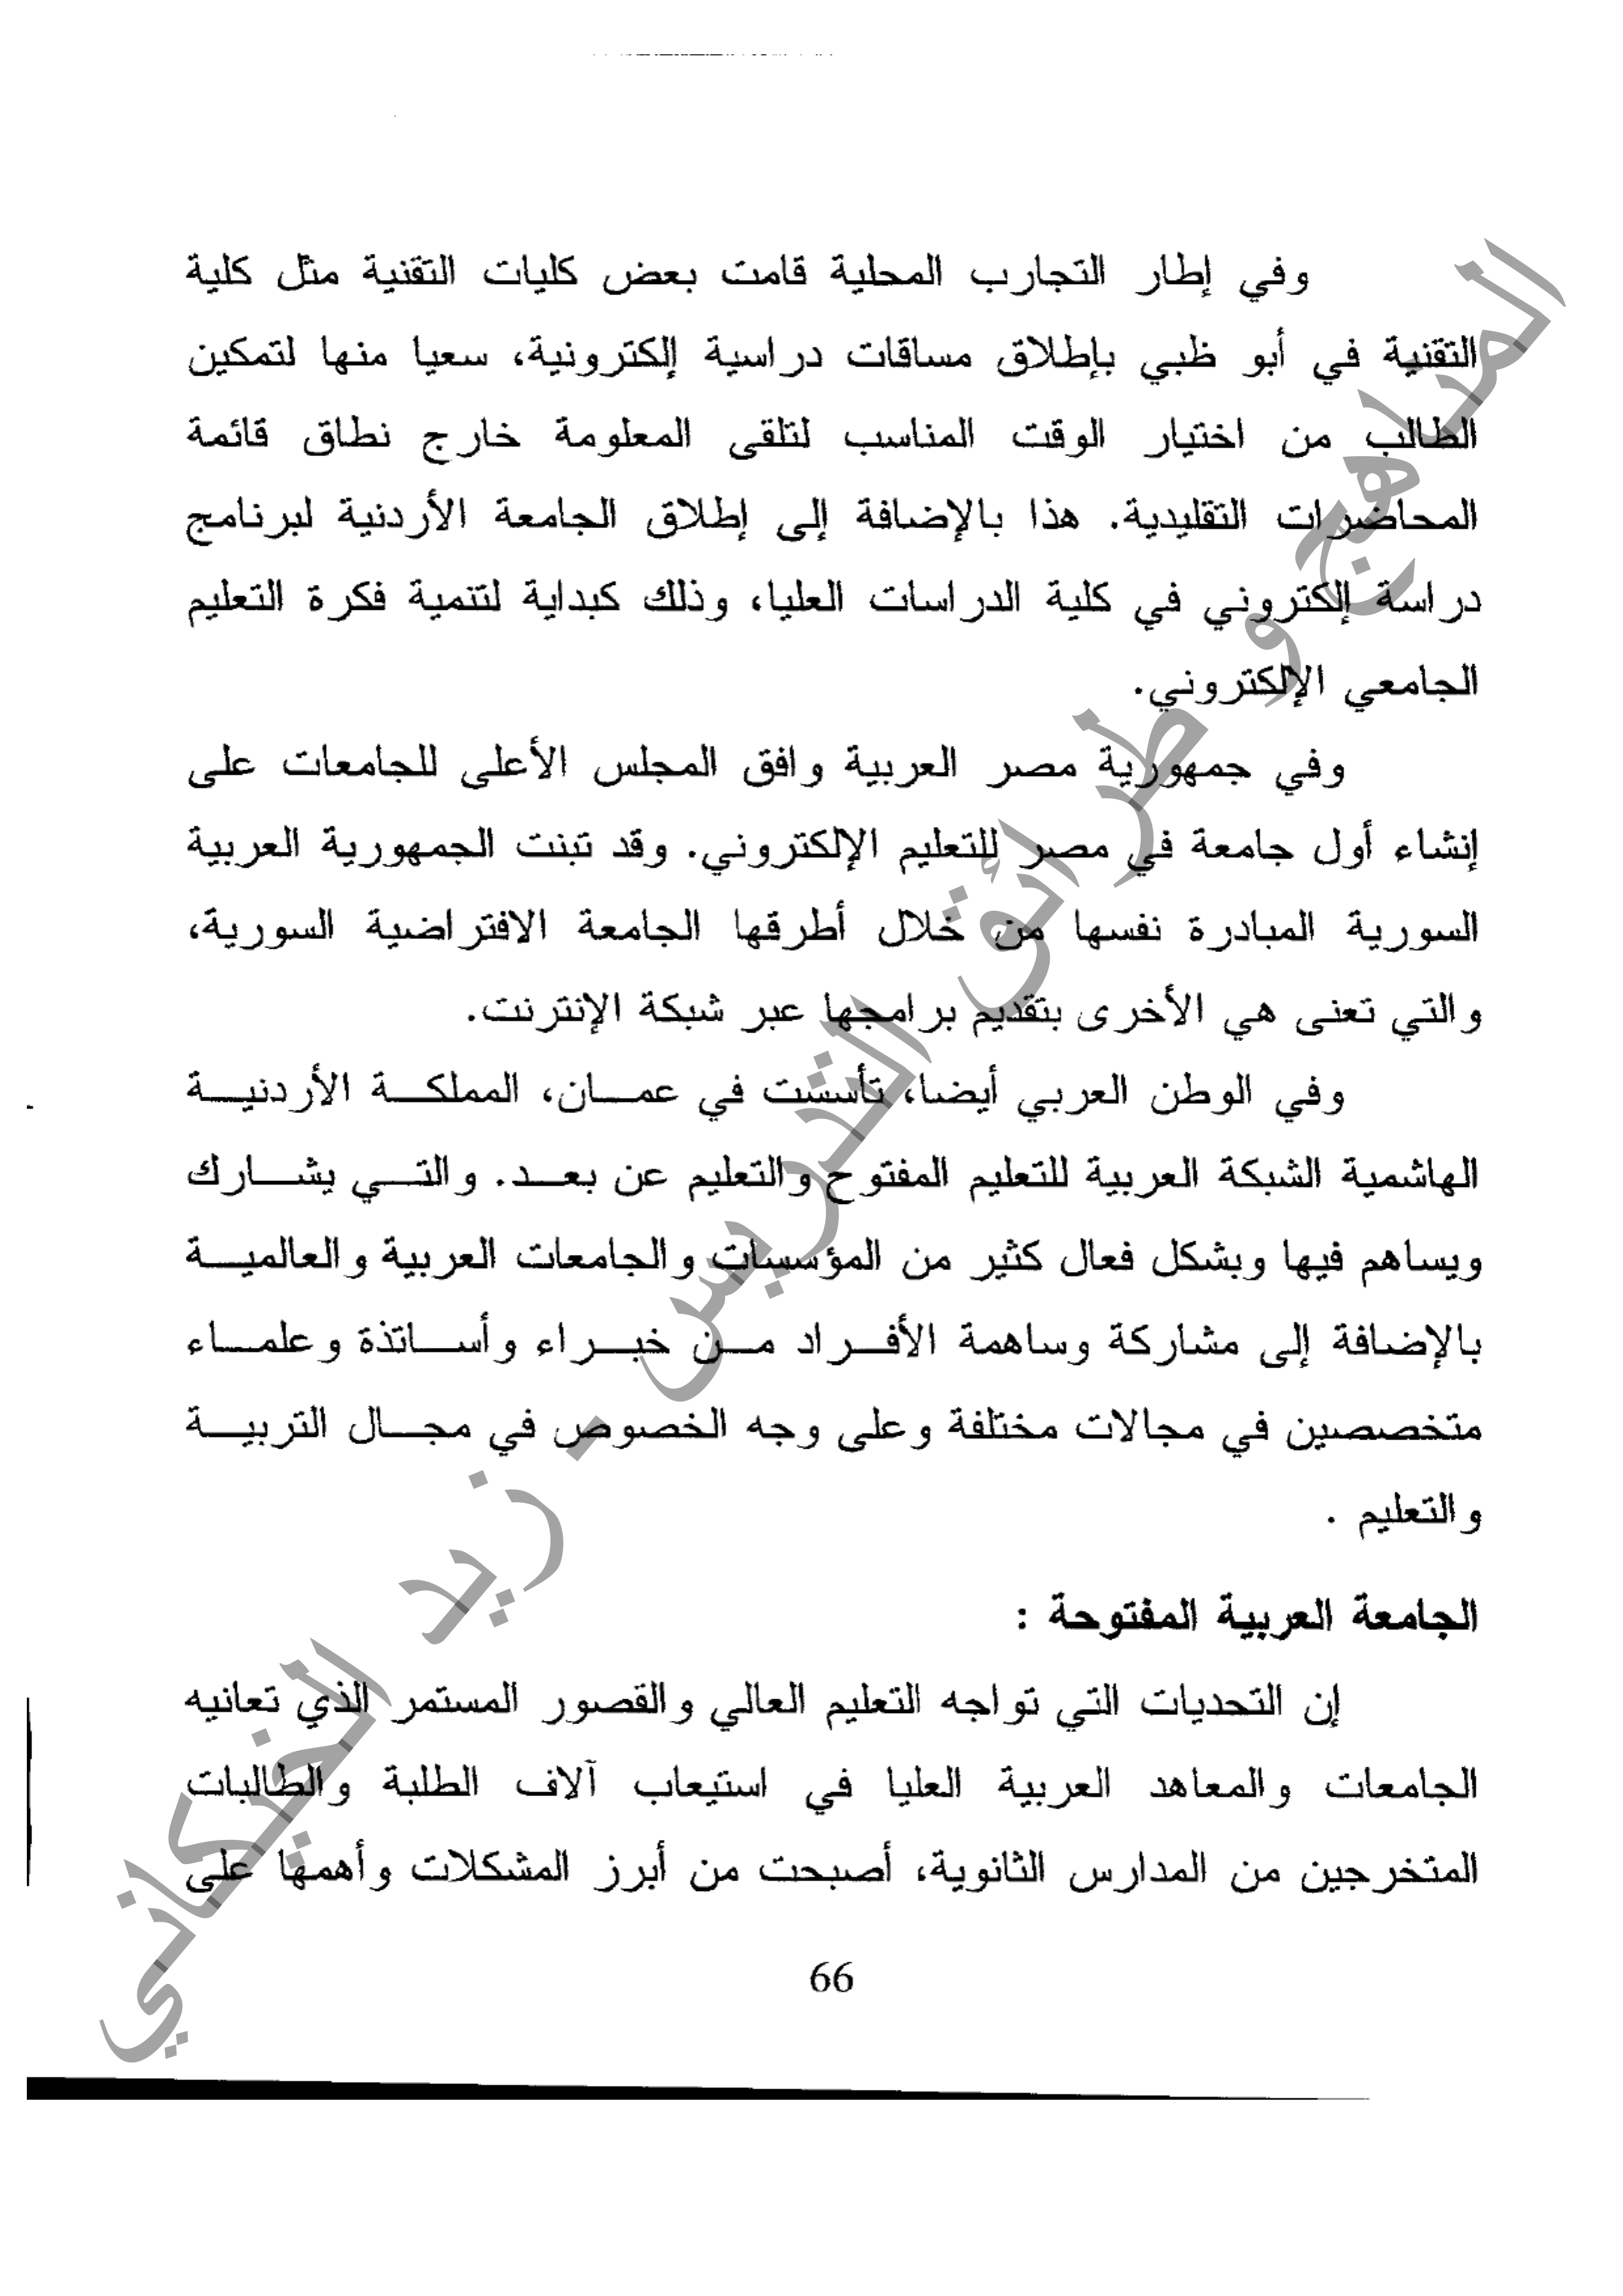 وفي إطار التجارب المحلية قامت بعض كليات التقنية مثل كلية
التقنية في أبو ظبي بإطلاق مساقات دراسية إلكترونية، سعيا منها لتمكين
الطالب من اختيار الوقت المناسب لتلقى المعلومة خارج نطاق قائمة
المحاضرات التقليدية. هذا بالإضافة إلى إطلاق الجامعة الأردنية لبرنامج
دراسة إلكتروني في كلية الدراسات العليا، وذلك كبداية لتتمية فكرة التعليم
الجامعي الإلكتروني.
وفي جمهورية مصر العربية وافق المجلس الأعلى للجامعات على
إنشاء أول جامعة في مصر للتعليم الإلكتروني. وقد تبنت الجمهورية العربية
السورية المبادرة نفسها من خلال أطرقها الجامعة الافتراضية السورية،
والتي تعنى هي الأخرى بتقديم برامجها عبر شبكة الإنترنت.
وفي الوطن العربي أيضا، تأسست في عمـــان، المملكـــة الأردنيـــة
الهاشمية الشبكة العربية للتعليم المفتوح والتعليم عن بعـــد. والتـــي يشـــارك
ويساهم فيها وبشكل فعال كثير من المؤسسات والجامعات العربية والعالميـــة
بالإضافة إلى مشاركة وساهمة الأفـــراد مـــن خبـــراء وأســـاتذة وعلمـــاء
متخصصين في مجالات مختلفة وعلى وجه الخصوص في مجـــال التربيـــة
والتعليم .
الجامعة العربية المفتوحة :
إن التحديات التي تواجه التعليم العالي والقصور المستمر الذي تعانيه
الجامعات والمعاهد العربية العليا في استيعاب آلاف الطلبة والطالبات
المتخرجين من المدارس الثانوية، أصبحت من أبرز المشكلات وأهمها على
66
المناهج و طرائق التدريس - زيد الخيكاني